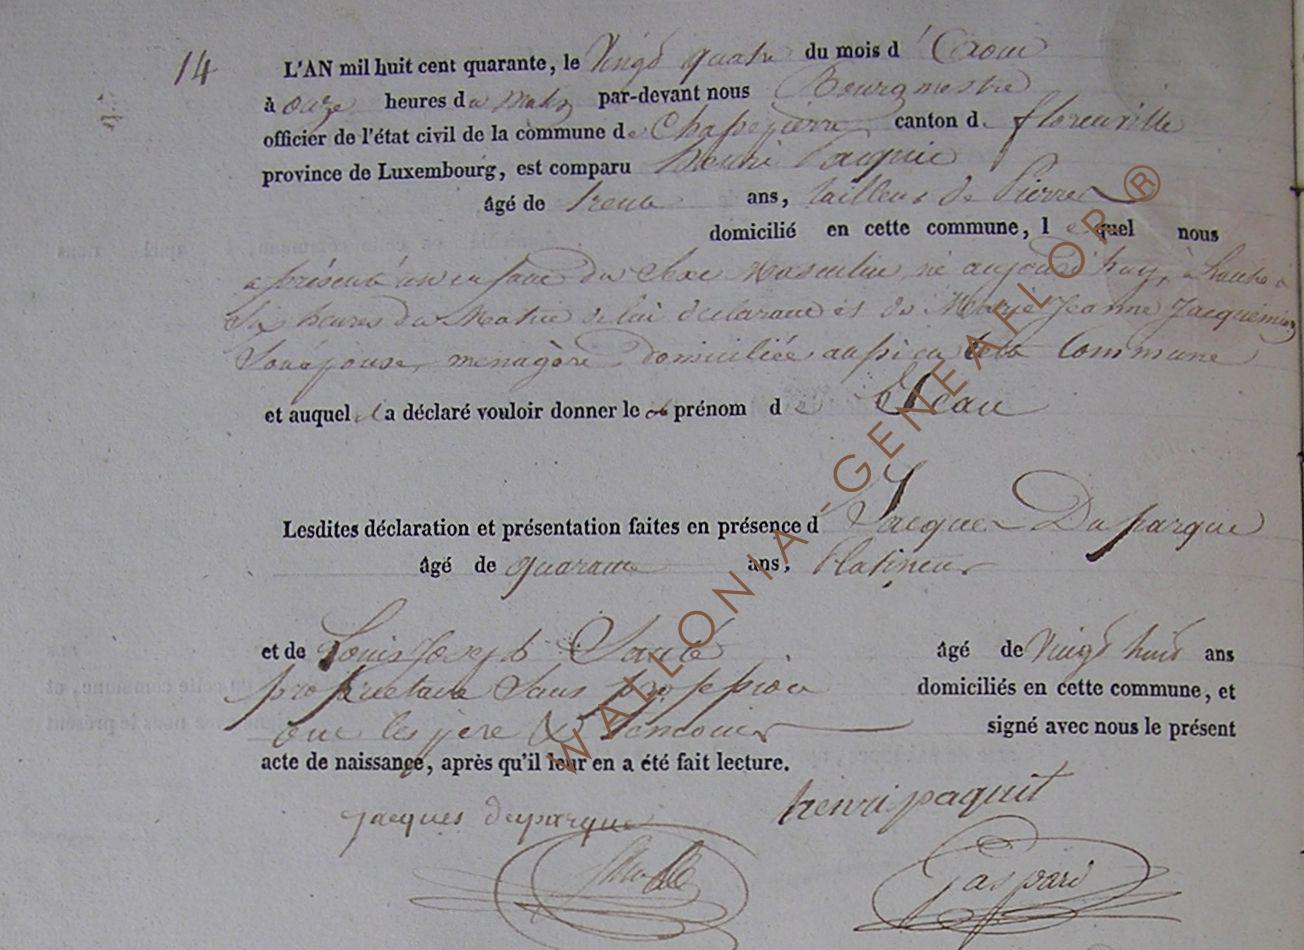 14 L'AN mil huit cent quarante, le Vingt quatre du mois d'Aout
à onze heures du Matin par-devant nous Bourgmestre
officier de l'état civil de la commune de Chassepierre canton de florenville
province de Luxembourg, est comparu henri Paquit
âgé de trente ans, tailleur de Pierres
domicilié en cette commune, lequel nous
a présenté un enfant du Sexe Masculin, né aujourd'huy, à
Six heures du Matin de lui declarant et de Marye Jeanne Jacquemin
Son épouse, menagère domiciliée aussi en cette Commune
et auquel il a déclaré vouloir donner le prénom de Jean
Lesdites déclaration et présentation faites en présence d Jacques Duparque
âgé de quarante ans, Platineur
et de Louis Joseph âgé de Vingt huit ans
proprietaire Sans profession domiciliés en cette commune, et
ont les père & temoins signé avec nous le présent
acte de naissance, après qu'il leur en a été fait lecture.
jacques duparque henri paquit
Gaspard
WALLONIA-GENEAFLOR®